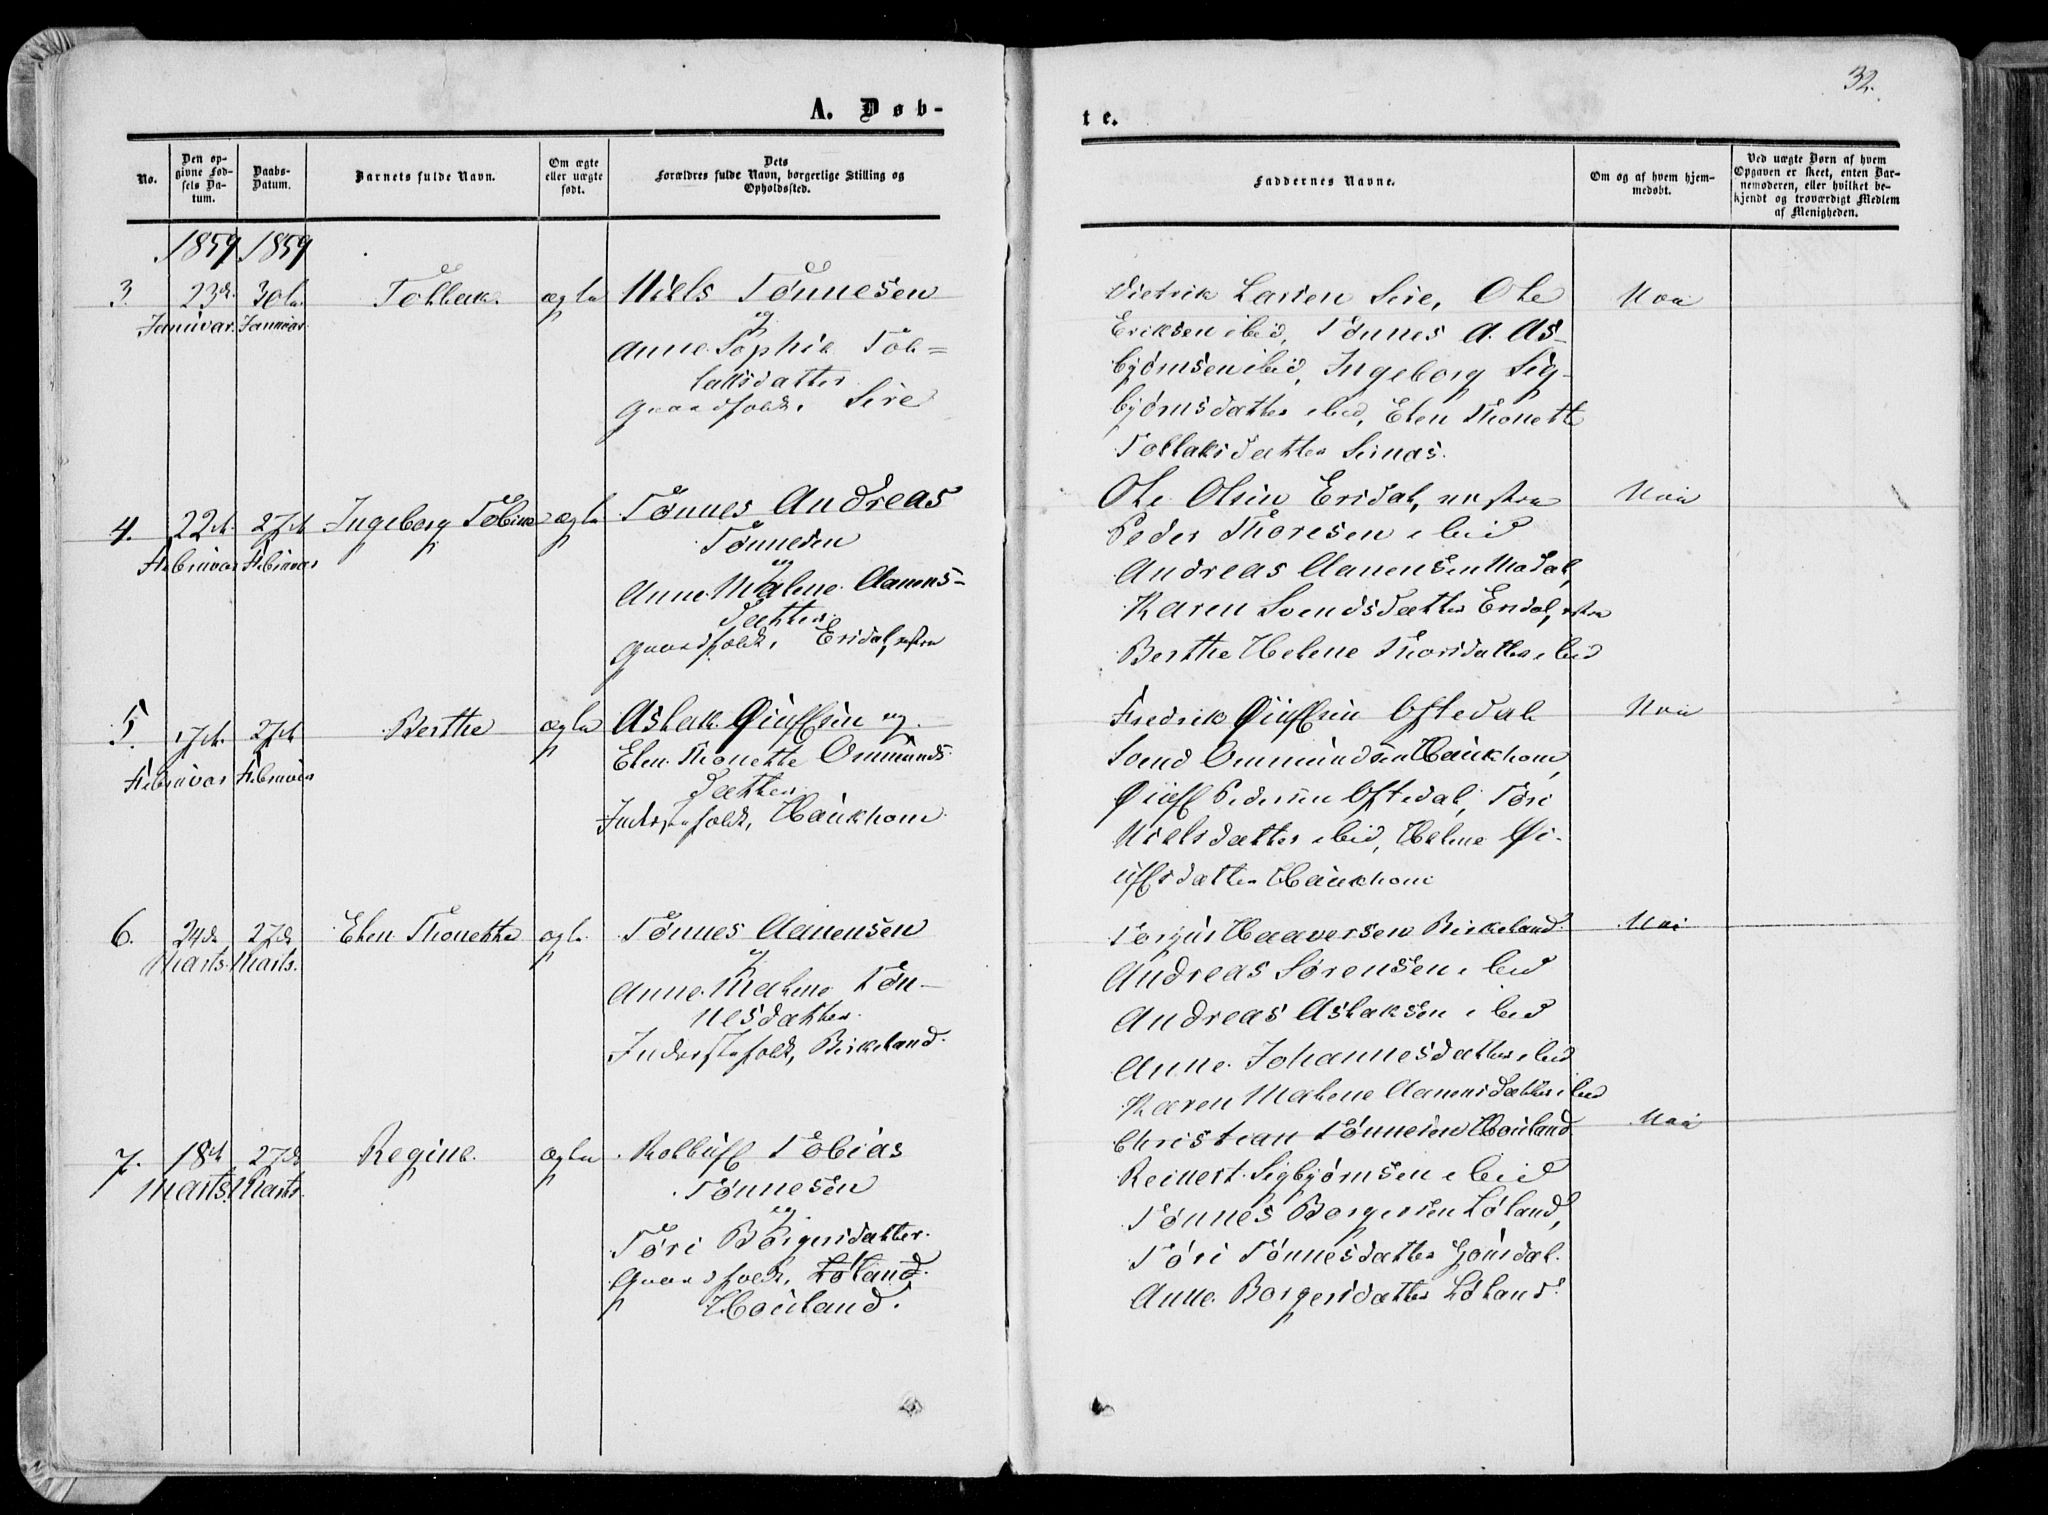 32.
A. Døb-
te.
No.
Den op-
givne Fød-
sels Da-
tum.
Daabs-
Datum.
Barnets fulde Navn.
Om ægte
eller uægte
født.
Dets
Forældres fulde Navn, borgerlige Stilling og
Opholdssted.
Faddernes Navne.
Om og af hvem hjem-
medøbt.
Ved uægte Børn af hvem
Opgaven er skeet, enten Bar-
nemoderen, eller hvilket be-
kjendt og troværdigt Medlem
af Menigheden.
1859 1859
3 23de 30te Tollak. ægte Niels Tønnesen
Januar. Januar.
og
Anne Sophie Tol=
laksdatter
Gaardfolk, Sire
Dietrik Larsen Sire, Ole
Eriksen ibid, Tønnes A. As-
bjørnsen ibid, Ingeborg Sig-
bjørnsdatter ibid, Elen Thonette
Tollaksdatter Sirnas.
Nei
4. 22de 27de Ingeborg Tobine ægte Tønnes Andreas
Februar Februar
Tønnesen
og
Anne Malene Aanens-
datter
Gaardfolk, Ersdal, østre
Ole Olsen Ersdal, østre
Peder Thoresen ibid
Andreas Aanensen Modal,
Karen Svendsdatter Ersdal, østre
Berthe Helene Thorsdatter ibid
Nei
5. 7de 27de Berthe ægte Aslak Øiulfsen og
Februar Februar
Elen Thonette Ommunds
datter
Inderstfolk, Haukhom
Fredrik Øiulfsen Oftedal
Svend Ommundsen Haukhom,
Øiulf Pedersen Oftedal, Tøri
Nielsdatter ibid, Helene Øi-
ulfsdatter Haukhom
Nei
6. 24de 27de Elen Thonette ægte Tønnes Aanensen
Marts. Marts.
og
Anne Malene Tøn-
nesdatter
Inderstfolk, Birkeland.
Torjus Haaversen Birkeland.
Andreas Sørensen ibid
Andreas Aslaksen ibid
Anne Johannesdatter ibid
Karen Malene Aanensdatter ibid
Nei
7. 18de 27de Regine. ægte Rolluf Tobias
Marts. Marts.
Tønnesen
og
Tøri Børgersdatter.
Gaardfolk, Løland.
Houland.
Christian Tønnesen Houland
Reinert Sigbjørnsen ibid
Tønnes Borgersen Løland,
Tøri Tønnesdatter
Anne Borgersdatter Løland.
Nei